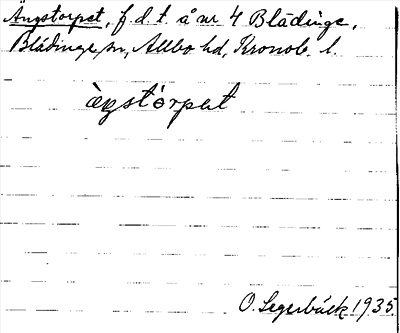 Ängstorpet, f. d. t. å nr 4 Blädinge,
Blädinge sn, Allbo hd, Kronob. l.
àŋstórpet
O. Segerbäck 1935